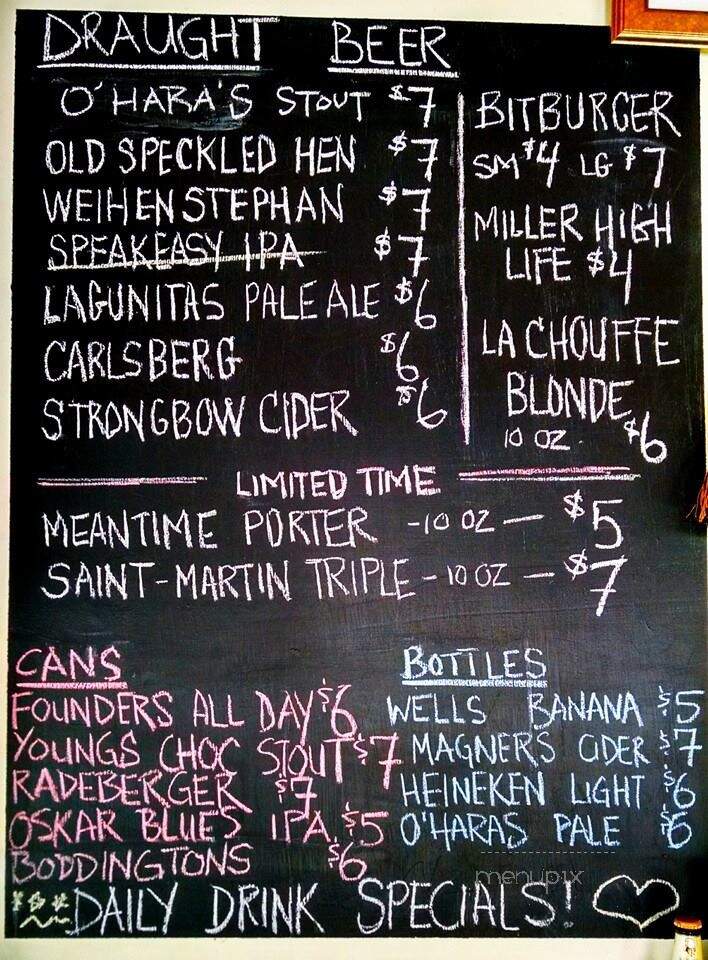 DRAUGHT BEER
O'HARA'S STOUT $7
OLD SPECKLED HEN $7
WEIHENSTEPHAN $7
SPEAKEASY IPA $7
LAGUNITAS PALE ALE $6
CARLSBERG $6
STRONGBOW CIDER $6
BITBURGER
SM $4 LG $7
MILLER HIGH
LIFE $4
LA CHOUFFE
BLONDE
10 OZ. $6
LIMITED TIME
MEANTIME PORTER -10 OZ - $5
SAINT-MARTIN TRIPLE - 10 OZ - $7
CANS
FOUNDERS ALL DAY $6
YOUNGS CHOC STOUT $7
RADEBERGER $7
OSKAR BLUES IPA. $5
BODDINGTONS $6
BOTTLES
WELLS BANANA $5
MAGNER'S CIDER $7
HEINEKEN LIGHT $6
O'HARAS PALE $6
menupix
DAILY DRINK SPECIALS!